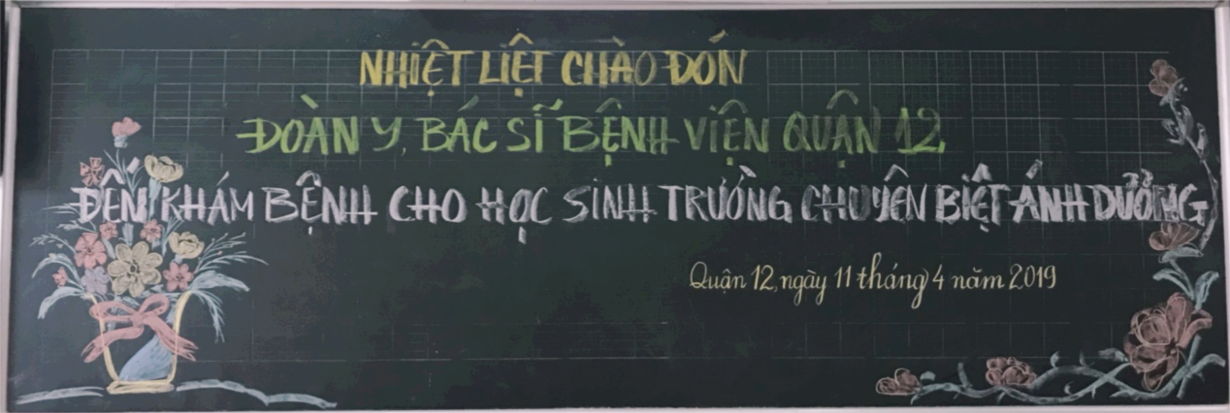 NHIỆT LIỆT CHÀO ĐÓN
ĐOÀN Y, BÁC SĨ BỆNH VIỆN QUẬN 12,
ĐẾN KHÁM BỆNH CHO HỌC SINH TRƯỜNG CHUYÊN BIỆT ÁNH DƯƠNG
Quận 12, ngày 11 tháng 4 năm 2019